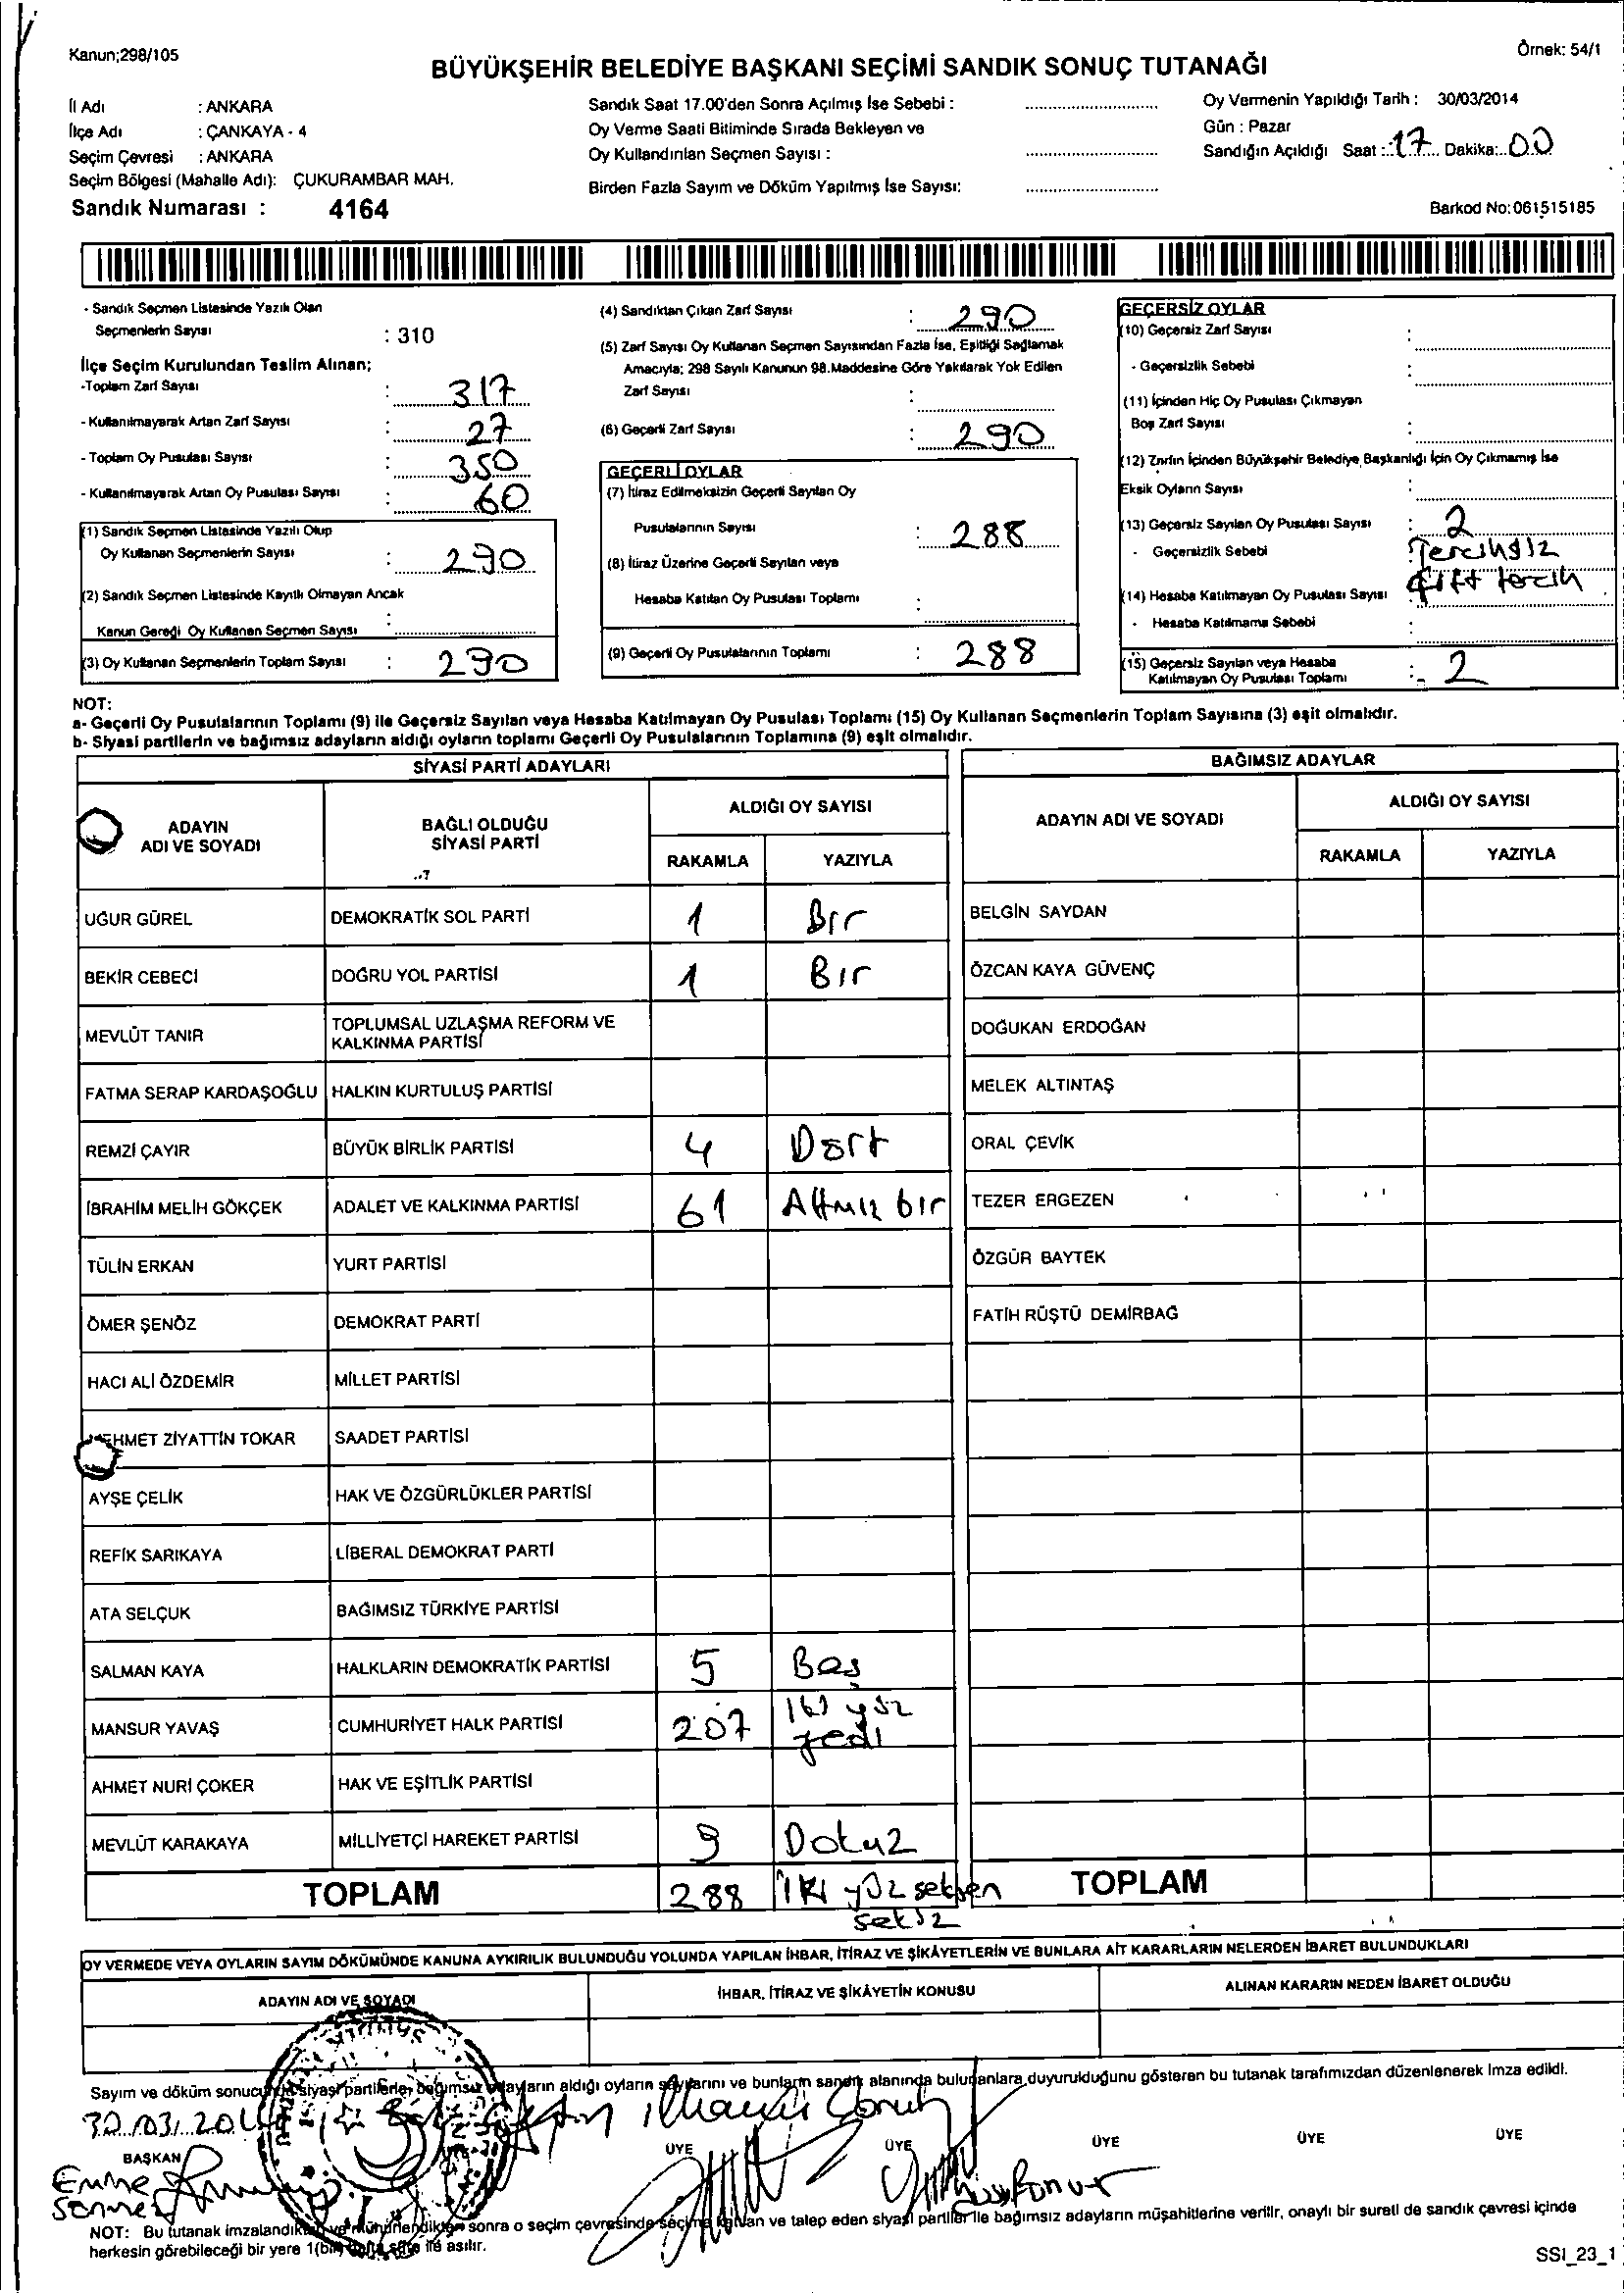 Kanun;298/105
Örnek: 54/1
BÜYÜKŞEHİR BELEDİYE BAŞKANI SEÇİMİ SANDIK SONUÇ TUTANAĞI
İl Adı : ANKARA
İlçe Adı : ÇANKAYA - 4
Seçim Çevresi : ANKARA
Seçim Bölgesi (Mahalle Adı): ÇUKURAMBAR MAH.
Sandık Numarası : 4164
Sandık Saat 17.00'den Sonra Açılmış İse Sebebi :
Oy Verme Saati Bitiminde Sırada Bekleyen ve
Oy Kullandırılan Seçmen Sayısı :
Birden Fazla Sayım ve Döküm Yapılmış İse Sayısı:
Oy Vermenin Yapıldığı Tarih : 30/03/2014
Gün : Pazar
Sandığın Açıldığı Saat : 17 Dakika: 00
Barkod No:061515185
- Sandık Seçmen Listesinde Yazılı Olan
Seçmenlerin Sayısı : 310
İlçe Seçim Kurulundan Teslim Alınan;
-Toplam Zarf Sayısı : 317
- Kullanılmayarak Artan Zarf Sayısı : 27
- Toplam Oy Pusulası Sayısı : 350
- Kullanılmayarak Artan Oy Pusulası Sayısı : 60
(1) Sandık Seçmen Listesinde Yazılı Olup
Oy Kullanan Seçmenlerin Sayısı : 290
(2) Sandık Seçmen Listesinde Kayıtlı Olmayan Ancak
Kanun Gereği Oy Kullanan Seçmen Sayısı :
(3) Oy Kullanan Seçmenlerin Toplam Sayısı : 290
(4) Sandıktan Çıkan Zarf Sayısı : 290
(5) Zarf Sayısı Oy Kullanan Seçmen Sayısından Fazla İse, Eşitliği Sağlamak
Amacıyla; 298 Sayılı Kanunun 98.Maddesine Göre Yakılarak Yok Edilen
Zarf Sayısı :
(6) Geçerli Zarf Sayısı : 290
GEÇERLİ OYLAR
(7) İtiraz Edilmeksizin Geçerli Sayılan Oy
Pusulalarının Sayısı : 288
(8) İtiraz Üzerine Geçerli Sayılan veya
Hesaba Katılan Oy Pusulası Toplamı :
(9) Geçerli Oy Pusulalarının Toplamı : 288
GEÇERSİZ OYLAR
(10) Geçersiz Zarf Sayısı :
- Geçersizlik Sebebi :
(11) İçinden Hiç Oy Pusulası Çıkmayan
Boş Zarf Sayısı :
(12) Zarfın İçinden Büyükşehir Belediye Başkanlığı İçin Oy Çıkmamış İse
Eksik Oyların Sayısı :
(13) Geçersiz Sayılan Oy Pusulası Sayısı : 2
- Geçersizlik Sebebi : Tercihsiz
Çift tercih
(14) Hesaba Katılmayan Oy Pusulası Sayısı
- Hesaba Katılmama Sebebi :
(15) Geçersiz Sayılan veya Hesaba
Katılmayan Oy Pusulası Toplamı : 2
NOT:
a- Geçerli Oy Pusulalarının Toplamı (9) ile Geçersiz Sayılan veya Hesaba Katılmayan Oy Pusulası Toplamı (15) Oy Kullanan Seçmenlerin Toplam Sayısına (3) eşit olmalıdır.
b- Siyasi partilerin ve bağımsız adayların aldığı oyların toplamı Geçerli Oy Pusulalarının Toplamına (9) eşit olmalıdır.
SİYASİ PARTİ ADAYLARI
ADAYIN ADI VE SOYADI BAĞLI OLDUĞU SİYASİ PARTİ ALDIĞI OY SAYISI
RAKAMLA YAZIYLA
UĞUR GÜREL DEMOKRATİK SOL PARTİ 1 Bir
BEKİR CEBECİ DOĞRU YOL PARTİSİ 1 Bir
MEVLÜT TANIR TOPLUMSAL UZLAŞMA REFORM VE KALKINMA PARTİSİ
FATMA SERAP KARDAŞOĞLU HALKIN KURTULUŞ PARTİSİ
REMZİ ÇAYIR BÜYÜK BİRLİK PARTİSİ 4 Dört
İBRAHİM MELİH GÖKÇEK ADALET VE KALKINMA PARTİSİ 61 Altmış bir
TÜLİN ERKAN YURT PARTİSİ
ÖMER ŞENÖZ DEMOKRAT PARTİ
HACI ALİ ÖZDEMİR MİLLET PARTİSİ
MEHMET ZİYATTİN TOKAR SAADET PARTİSİ
AYŞE ÇELİK HAK VE ÖZGÜRLÜKLER PARTİSİ
REFİK SARIKAYA LİBERAL DEMOKRAT PARTİ
ATA SELÇUK BAĞIMSIZ TÜRKİYE PARTİSİ
SALMAN KAYA HALKLARIN DEMOKRATİK PARTİSİ 5 Beş
MANSUR YAVAŞ CUMHURİYET HALK PARTİSİ 207 İki yüz yedi
AHMET NURİ ÇOKER HAK VE EŞİTLİK PARTİSİ
MEVLÜT KARAKAYA MİLLİYETÇİ HAREKET PARTİSİ 9 Dokuz
TOPLAM 288 İki yüz seksen sekiz
BAĞIMSIZ ADAYLAR
ADAYIN ADI VE SOYADI ALDIĞI OY SAYISI
RAKAMLA YAZIYLA
BELGİN SAYDAN
ÖZCAN KAYA GÜVENÇ
DOĞUKAN ERDOĞAN
MELEK ALTINTAŞ
ORAL ÇEVİK
TEZER ERGEZEN
ÖZGÜR BAYTEK
FATİH RÜŞTÜ DEMİRBAĞ
TOPLAM
OY VERMEDE VEYA OYLARIN SAYIM DÖKÜMÜNDE KANUNA AYKIRILIK BULUNDUĞU YOLUNDA YAPILAN İHBAR, İTİRAZ VE ŞİKÂYETLERİN VE BUNLARA AİT KARARLARIN NELERDEN İBARET BULUNDUKLARI
ADAYIN ADI VE SOYADI İHBAR, İTİRAZ VE ŞİKÂYETİN KONUSU ALINAN KARARIN NEDEN İBARET OLDUĞU
Sayım ve döküm sonucunda siyasi partilerle, bağımsız adayların aldığı oyların sayılarını ve bunların sandık alanında bulunanlara duyurulduğunu gösteren bu tutanak tarafımızdan düzenlenerek imza edildi.
30/03/2014
BAŞKAN ÜYE ÜYE ÜYE ÜYE ÜYE
Emine
NOT: Bu tutanak imzalandıktan ve mühürlendikten sonra o seçim çevresinde seçime katılan ve talep eden siyasi partiler ile bağımsız adayların müşahitlerine verilir, onaylı bir sureti de sandık çevresi içinde
herkesin görebileceği bir yere 1(bir) hafta süre ile asılır.
SSI_23_1